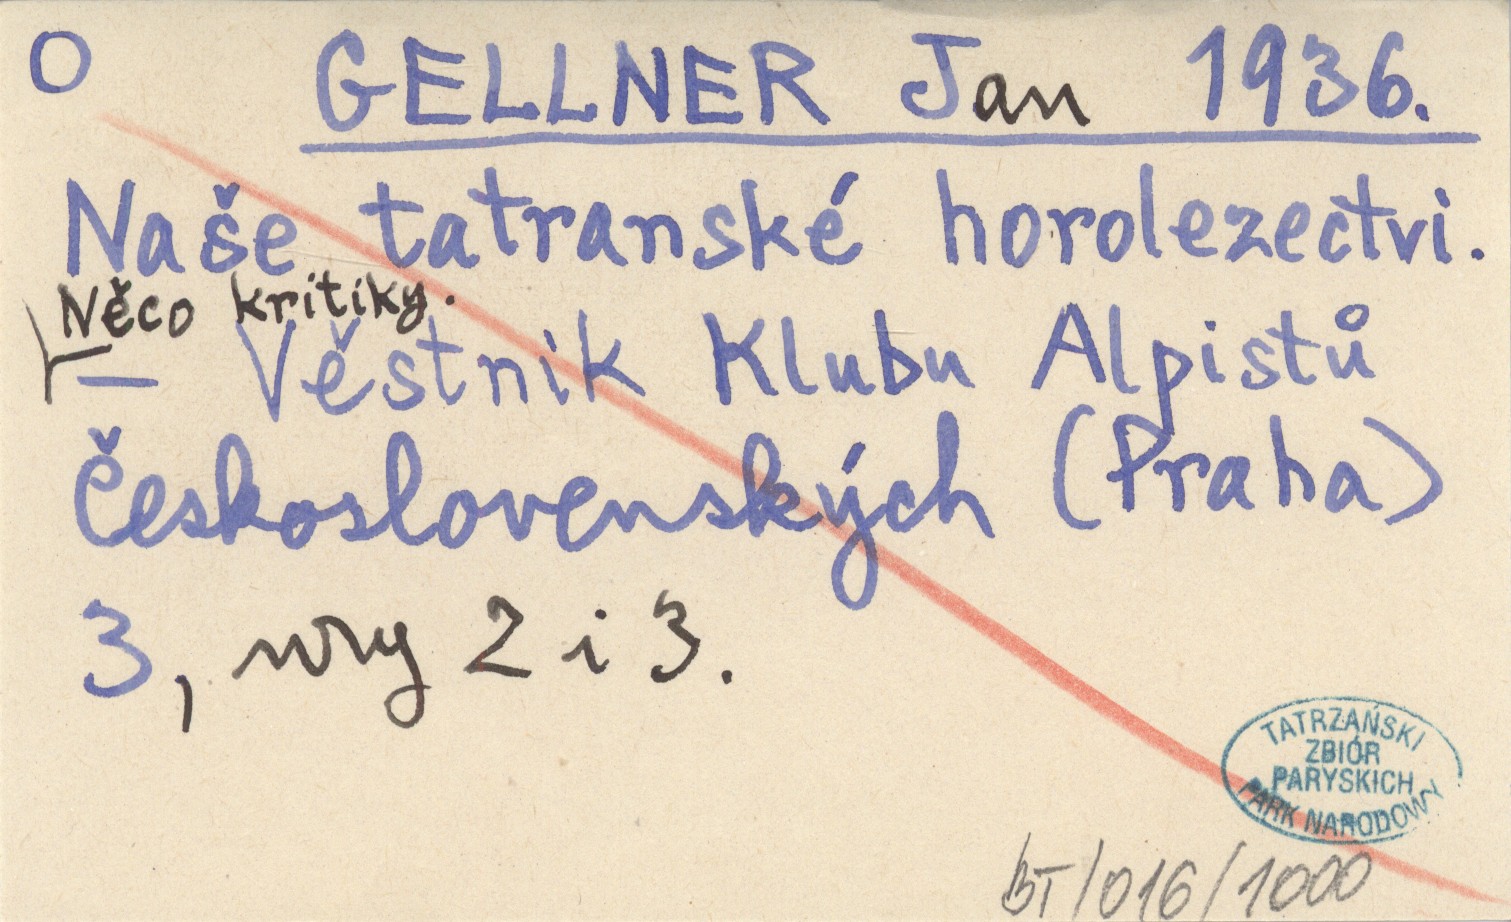 O GELLNER Jan 1936.
Naše tatranské horolezectvi.
Něco kritiky.
— Věstnik Klubu Alpistů
Československých (Praha)
3, nry 2 i 3.
TATRZAŃSKI
ZBIÓR
PARYSKICH
PARK NARODOWY
BT/016/1000